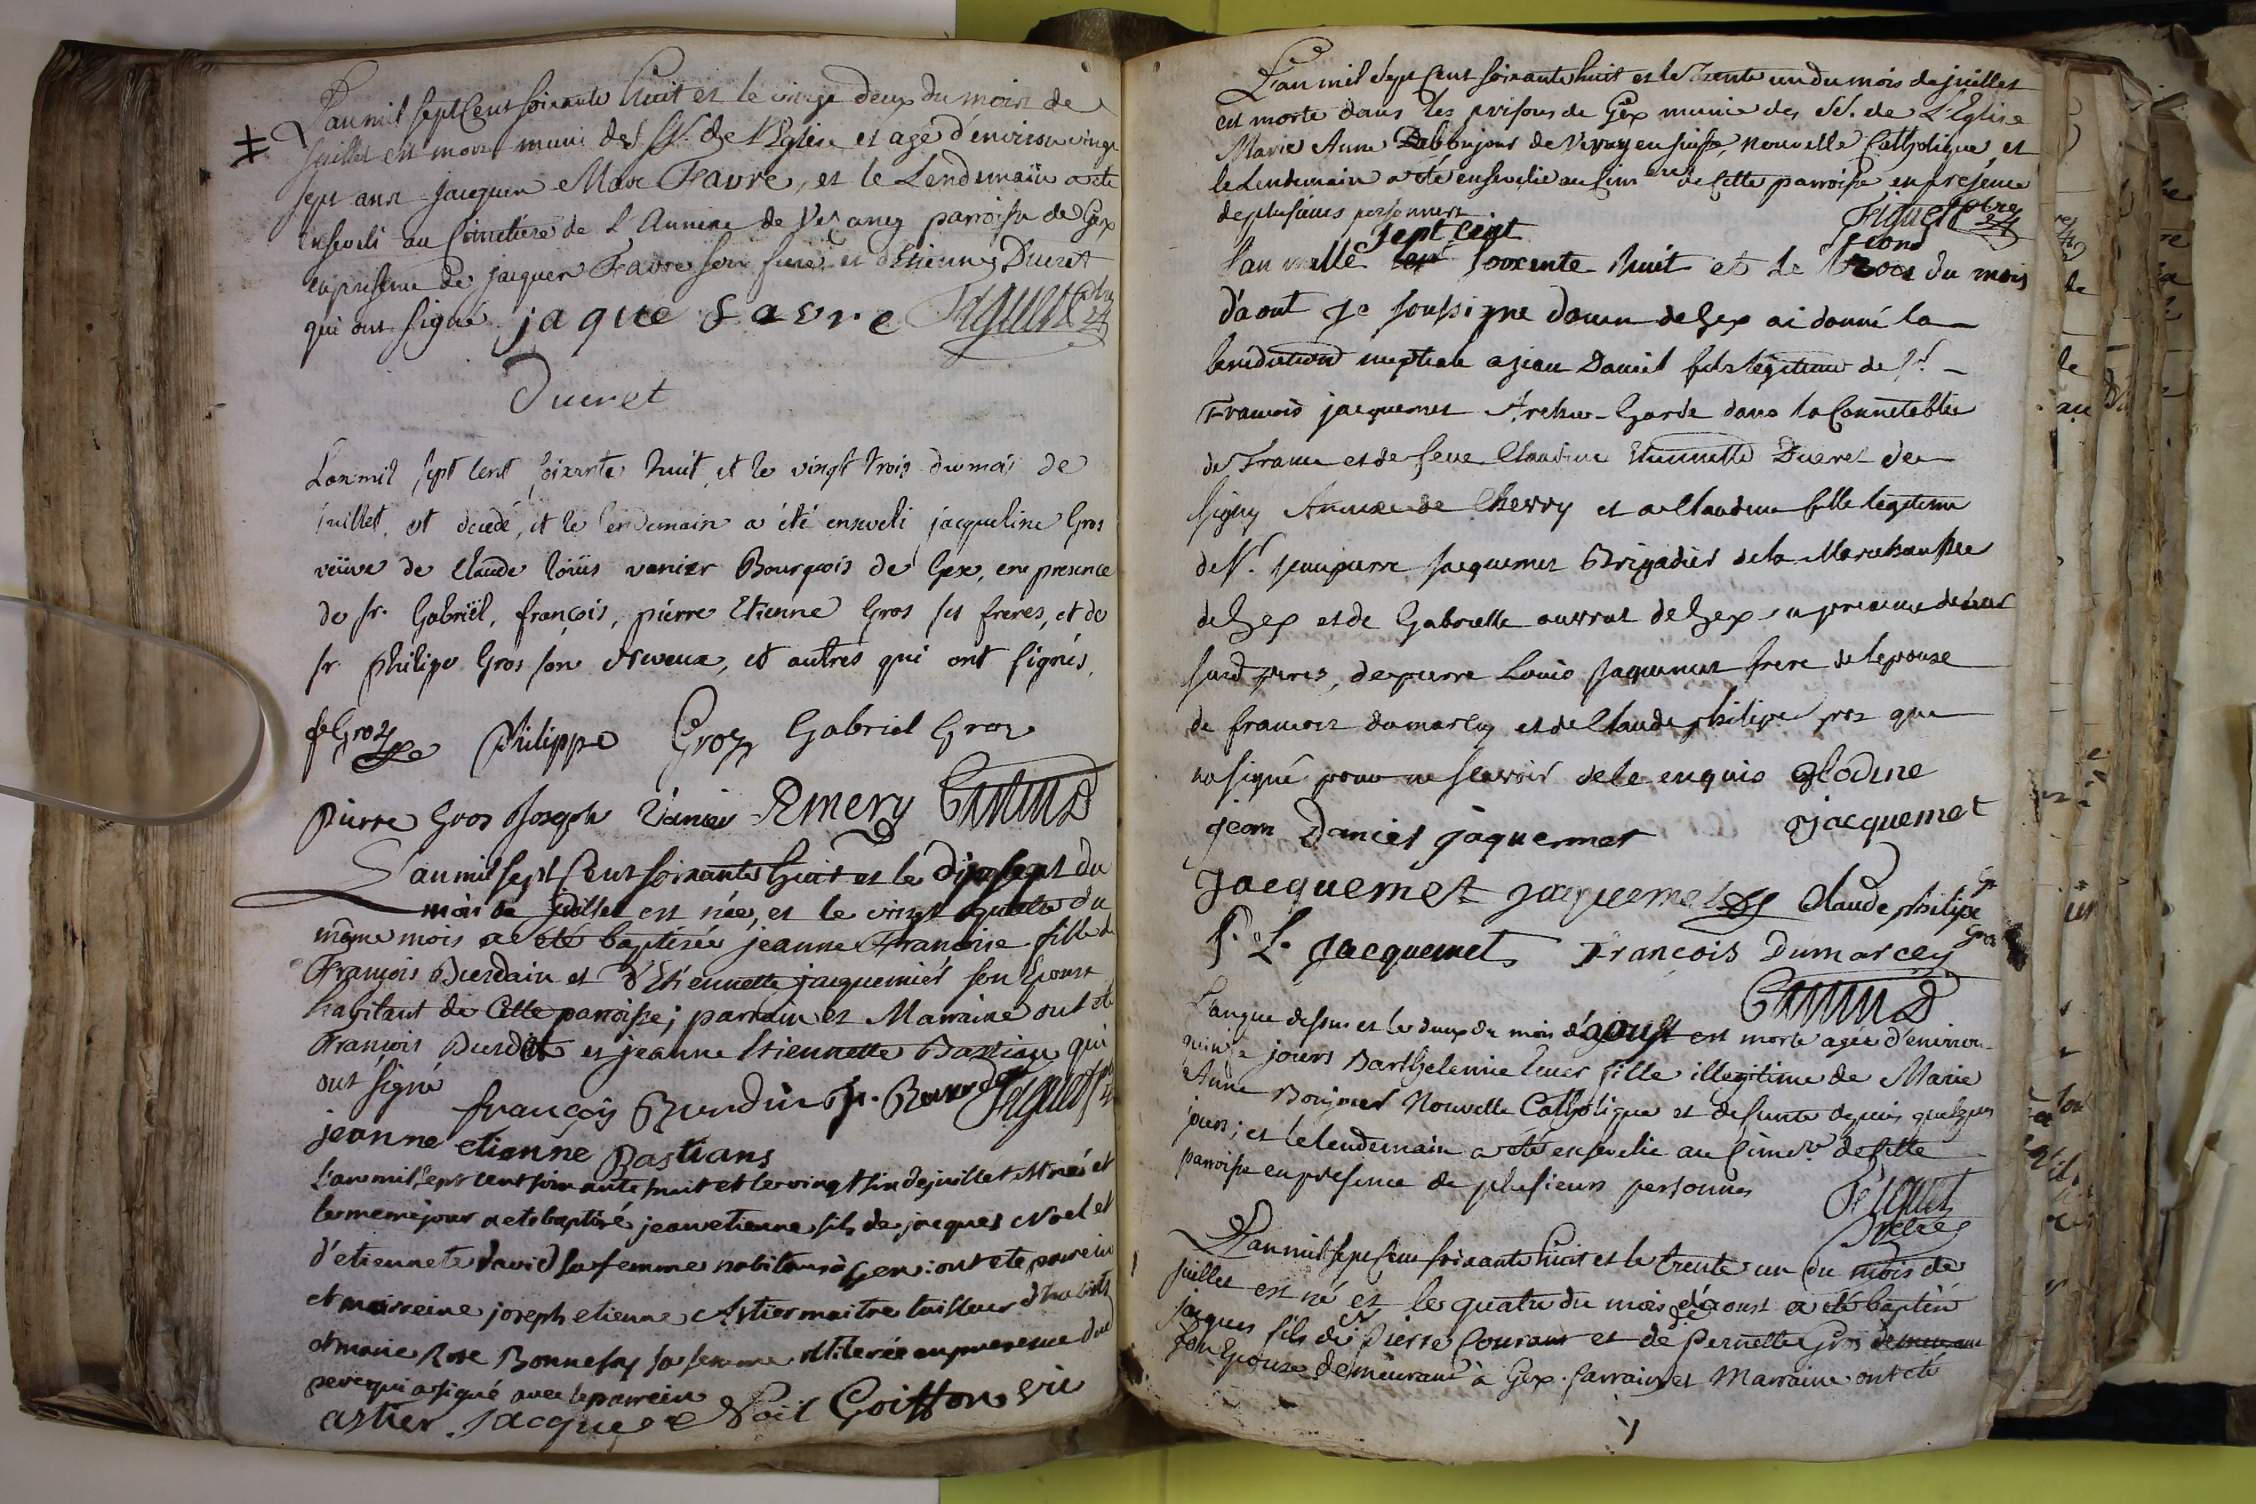 L'an mil sept Cent soixante huit et le vingt deux du mois de
juillet est mort muni des SS. de l'Eglise et agé d'environ vingt
sept ans jacques Marc Favre, et le Lendemain a été
enseveli au Cimetiere de L'Annexe de Vesancy parroisse de Gex
en presence de jacques Favre son frere et d'Etienne Ducret
qui ont signé jaque favre
Ducret
L'an mil sept cent soixante huit, et le vingt trois du mois de
juillet, est decedé, et le lendemain a été enseveli jacqueline Gros
veüve de Claude loüis vanier Bourgeois de Gex, en presence
de sr. Gabriël, françois, pierre Etienne Gros ses freres, et de
sr. philipe Gros son Neveux, et autres qui ont signés.
Philippe Groz Gabriel Groz
pierre Gros Joseph Vanier Emery
L'an mil sept Cent soixante huit et le dix sept du
mois de juillet est née, et le vingt quatre du
même mois a eté baptisée jeanne Francoise fille de
François Burdain et d'Etiennette jacquemier son Epouse
habitant de Cette parroisse; parrain et Marraine ont été
François Burdet et jeanne Etiennette Bastian qui
ont signé
françois Burdin
jeanne etienne Bastians
L'an mil sept cent soixante huit et le vingt six de juillet est né et
le meme jour a eté baptisé jean etienne fils de jacques Noel et
d'etiennete david sa femme habitans à Gex: ont eté parrein
et marreine joseph etienne Astier maitre tailleur d'habits
et marie Rose Bonnefoy sa femme illiterée en presence du
pere qui a signé avec le parrein
astier jacque Noil Goiffon vic
L'an mil sept Cent soixante huit et le trente un du mois de juillet
est morte dans les prisons de Gex munie des SS. de L'Eglise
Marie Anne Bonjour de Vevay en suisse, nouvelle Catholique et
le Lendemain a été ensevelie au Cimre de Cette parroisse en presence
de plusieurs personnes
sept cent
second
L'an mille soixente huit et le trois du mois
d'aout je soussigne doien de Gex ai donné la
benediction nuptiale a jean Daniel fils legitime de Sr.
Francois jacquemet Archer-Garde dans la Connetablie
de France et de feue Claudine Etiennette Ducret de
Signy Annexe de Chevry et a Claudine fille legitime
de Sr. jean pierre jacquemet Brigadier de la Marechaussée
de Gex et de Gabrielle ouvrat de Gex en presence de leurs
susd peres, de pierre Louis jaquemet frere de lepouse
de francois dumarcey et de Claude philipe gros que
na signé pour ne scavoir de ce enquis glodine
jean Daniel jaquemet jacquemet
jacquemet jacquemet Claude philipe
Gros
P. L. jacquemet François Dumarcey
L'an que dessus et le deux du mois d'aoust est morte agée d'environ
quinze jours Barthelemie fille illegitime de Marie
Anne Bonjour Nouvelle Catholique et defunte depuis quelques
jours; et le lendemain a été ensevelie au Cimre. de Cette
parroisse en presence de plusieurs personnes
L'an mil sept Cent soixante huit et le trente un du mois de
juillet est né et le quatre du mois d'aoust a été baptisé
jacques fils de Pierre Courant et de Pernette Gros
son Epouse demeurant à Gex. parrain et Marraine ont été